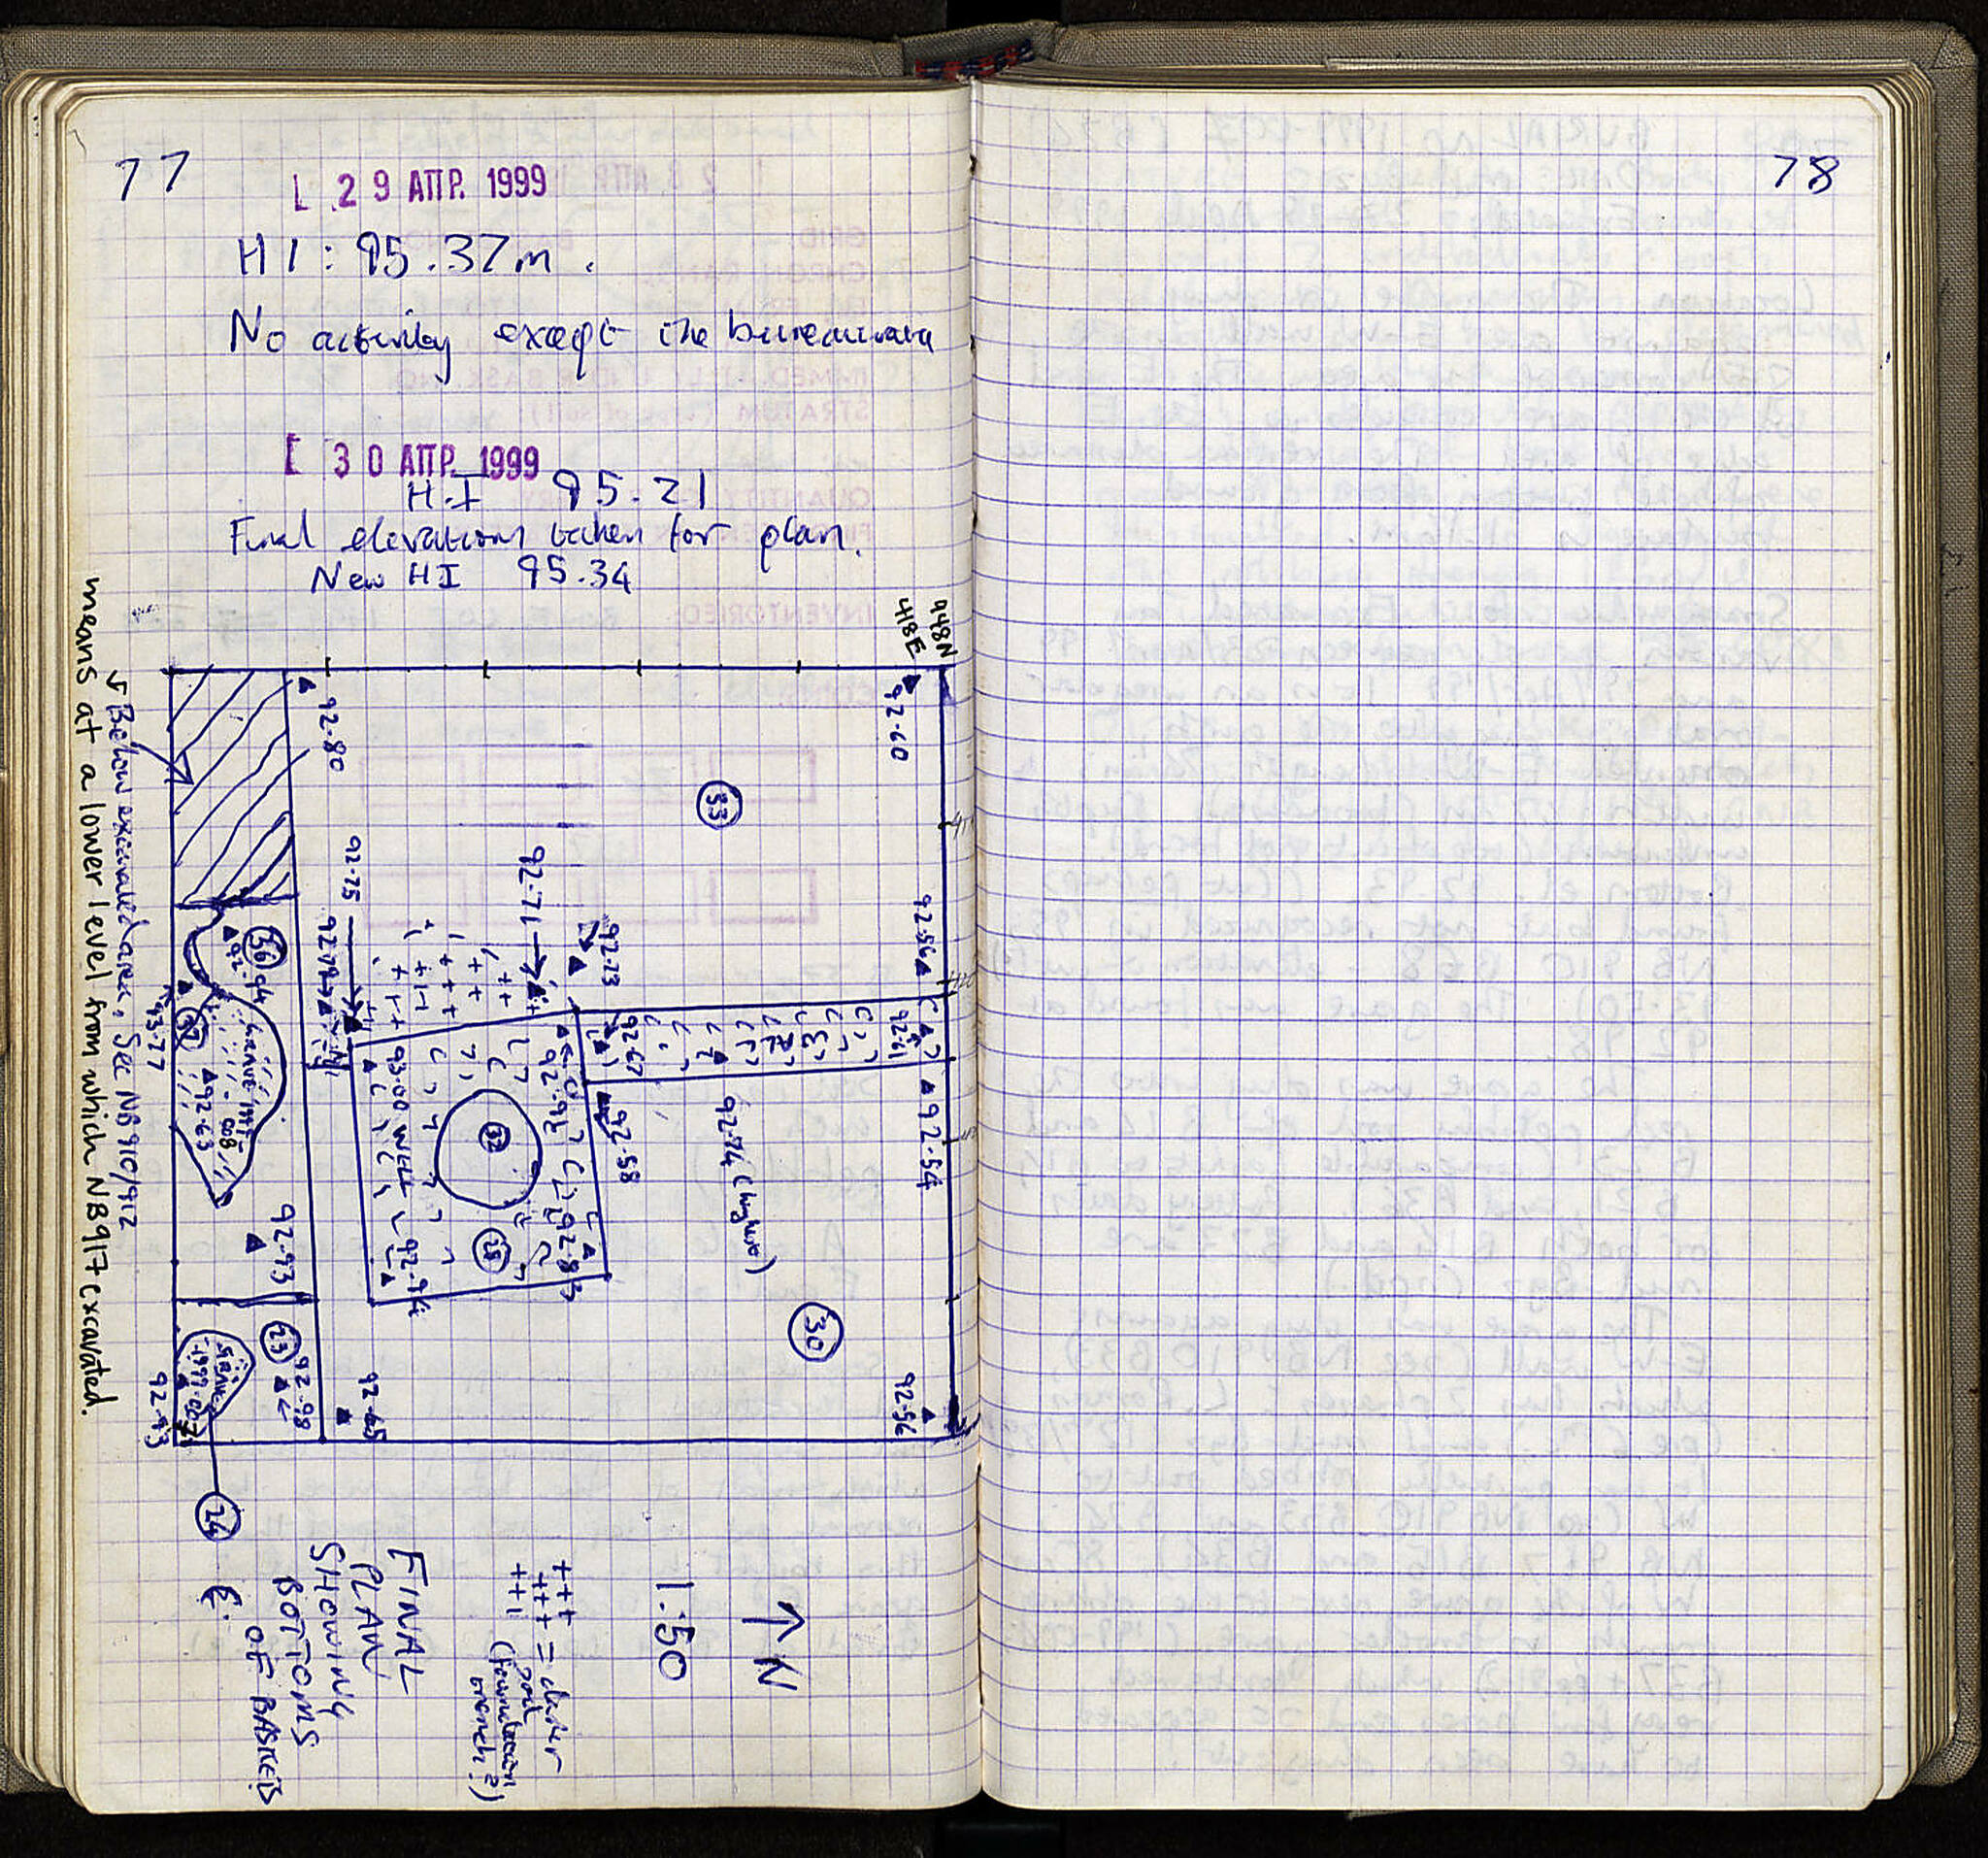 77
29 ΑΠΡ. 1999
HI: 95.37m.
No activity except the bureaucracy
30 ΑΠΡ. 1999
H.I 95.21
Final elevations taken for plan.
New HI 95.34
448N
418E
92.60
92.80
33
92.75
92.71
92.79
92.73
92.56
36
92.94
93.77
37
GRAVE 1999-008
92.63
92.67
92.61
92.58
92.54
92.74 (higher)
93.00 WELL
92.93
32
28
92.83
92.94
92.93
30
23
92.98
GRAVE 1999-007
92.93
92.65
92.56
24
Below excavated area, See NB 910/912
means at a lower level from which NB 917 excavated.
N
1:50
+++ = darker
soil
(foundation
trench?)
FINAL
PLAN
SHOWING
BOTTOMS
OF BASKETS
78